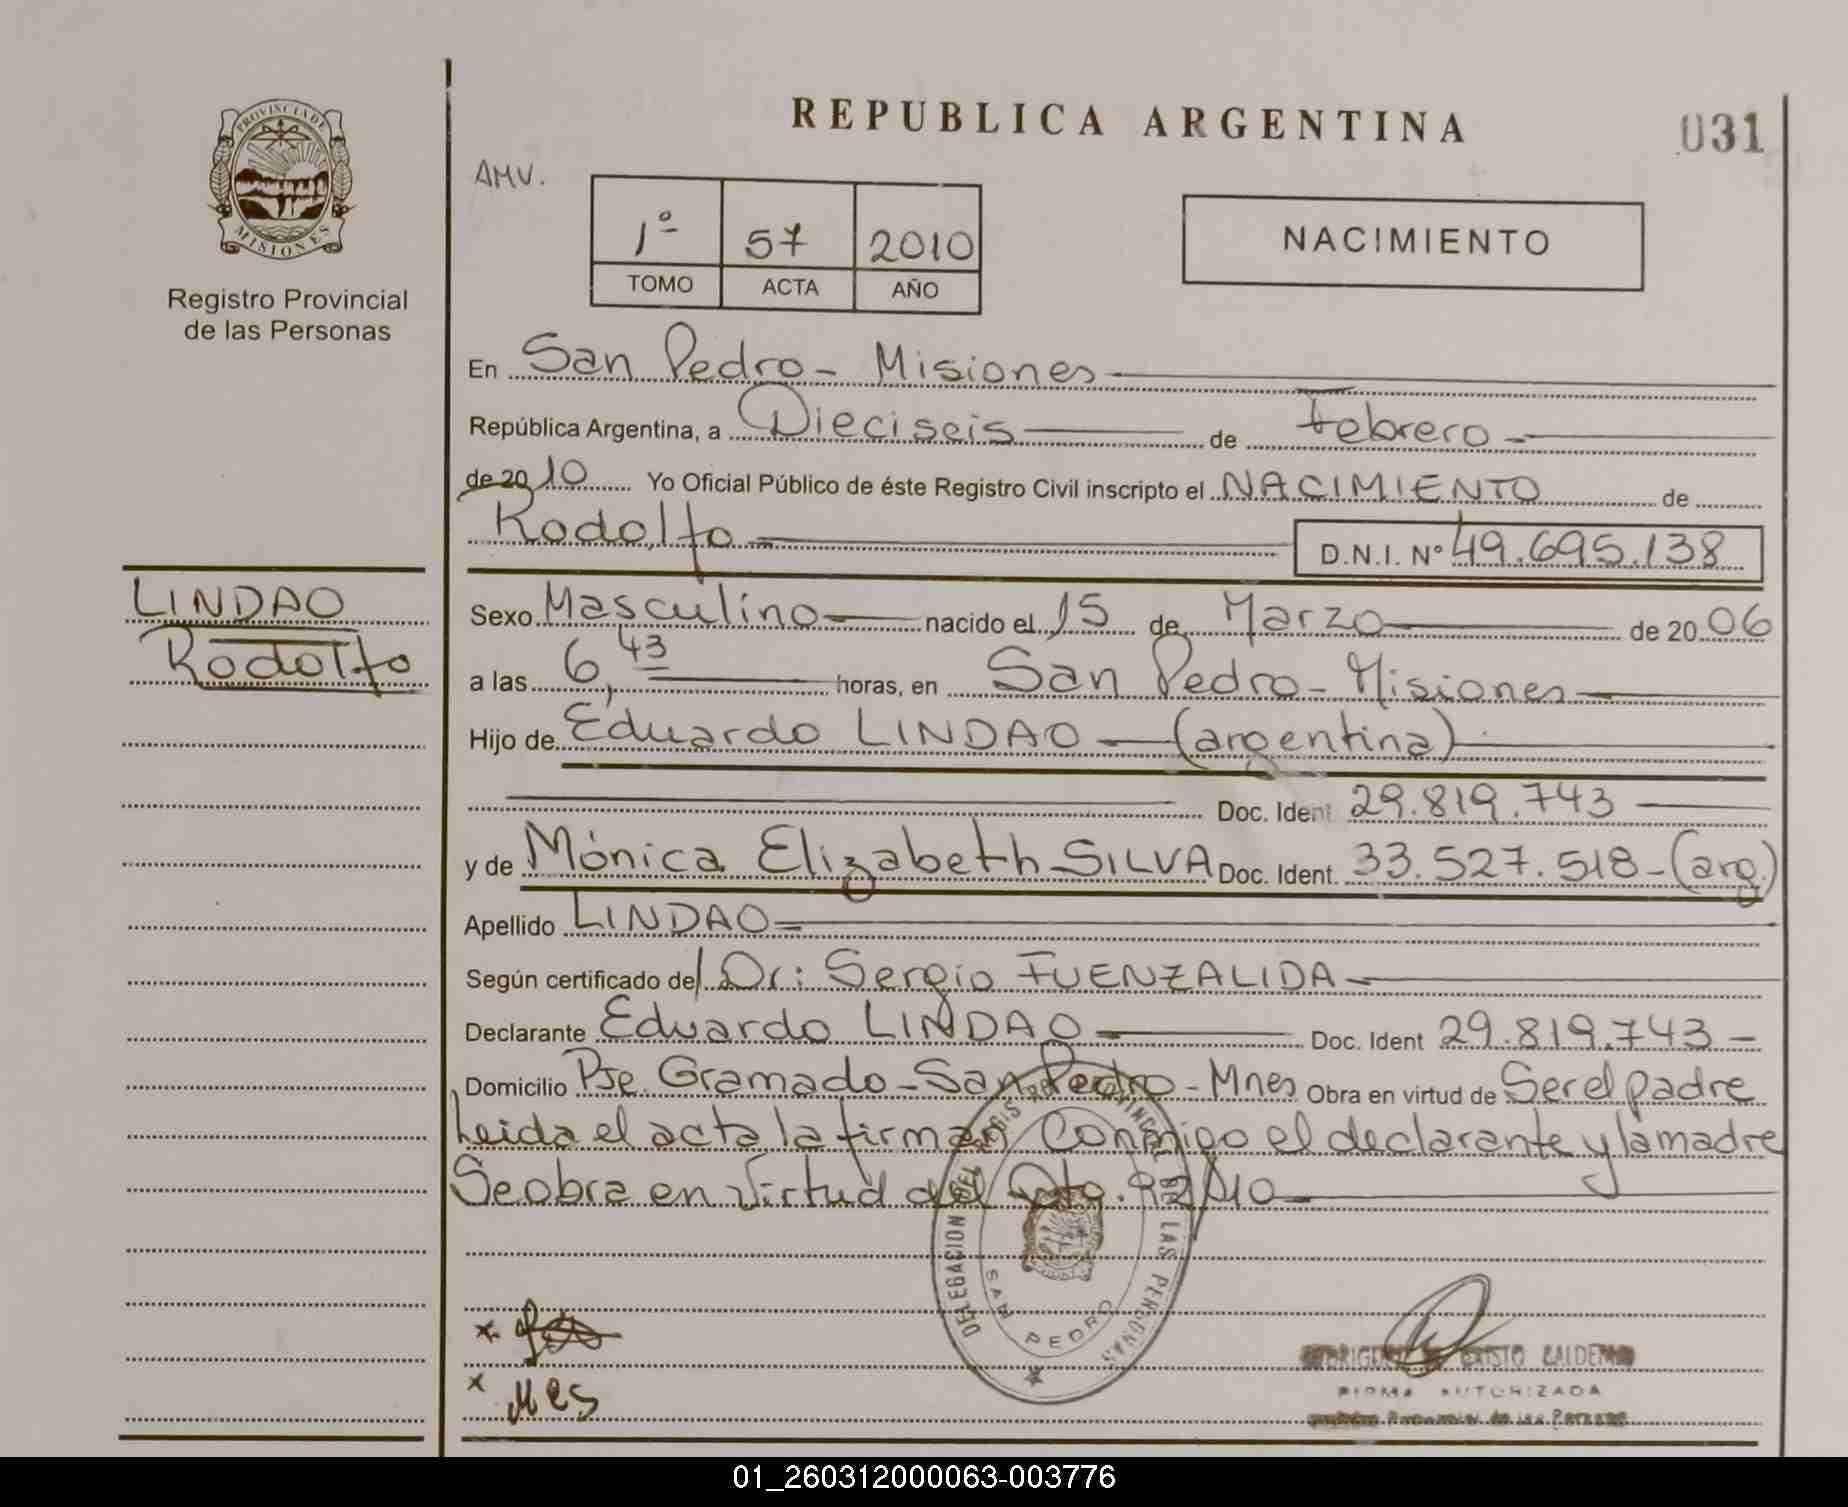 REPUBLICA ARGENTINA
031
PROVINCIA DE
MISIONES
Registro Provincial
de las Personas
AMV.
1º 57 2010
TOMO ACTA AÑO
NACIMIENTO
En San Pedro - Misiones
República Argentina, a Dieciseis de Febrero
de 2010 Yo Oficial Público de éste Registro Civil inscripto el NACIMIENTO de
Rodolfo D.N.I. Nº 49.695.138
LINDAO
Rodolfo
Sexo Masculino nacido el 15 de Marzo de 2006
a las 6,43 horas, en San Pedro - Misiones
Hijo de Eduardo LINDAO - (argentina)
Doc. Ident 29.819.743
y de Mónica Elizabeth SILVA Doc. Ident. 33.527.518 - (arg.)
Apellido LINDAO
Según certificado del Dr: Sergio FUENZALIDA
Declarante Eduardo LINDAO Doc. Ident 29.819.743 -
Domicilio Pje. Gramado - San Pedro - Mnes Obra en virtud de Ser el padre
Leida el acta la firman conmigo el declarante y la madre
Se obra en virtud del Dto. 92/10
DELEGACION DEL REGISTRO PROVINCIAL DE LAS PERSONAS
SAN PEDRO
x
x MES
FIRMA AUTORIZADA
01_260312000063-003776